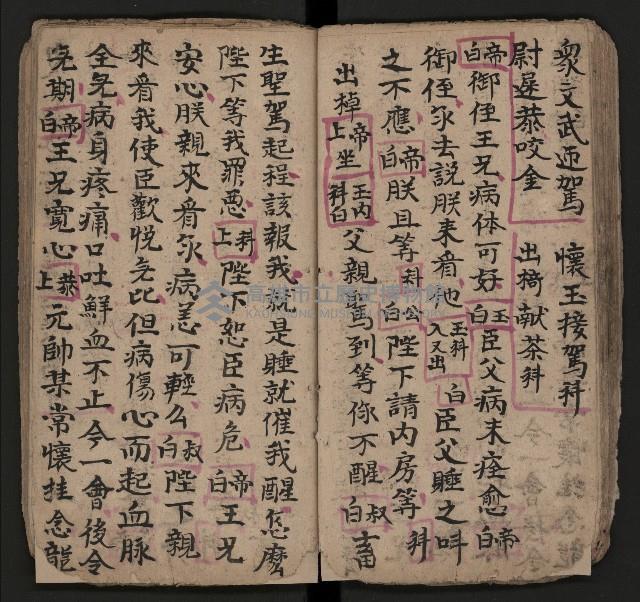 衆文武迎駕 懷玉接駕科
尉遲恭咬金 出椅献茶科
白帝御侄王兄病体可好白玉臣父病未痊愈白帝
御侄尔去説朕来看也玉科入又出白臣父睡之叫
之不應白帝朕且等科白公陛下請内房等科
出棹上坐帝玉内科白父親駕到等你不醒白叔畜
生聖駕起程該報我就是睡就催我醒怎麽
陛下等我罪悪上科陛下恕臣病危白帝王兄
安心朕親來看尔病恙可輕么白叔陛下親
來看我使臣歡悦無比但病傷心而起血脉
全無病身疼痛口吐鮮血不止今一會後令
無期白帝王兄寬心上恭元帥某常懷挂念龍
高雄市立歷史博物館
KAOHSIUNG MUSEUM OF HISTORY